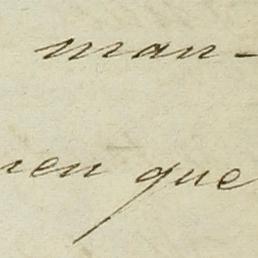 man-
en que